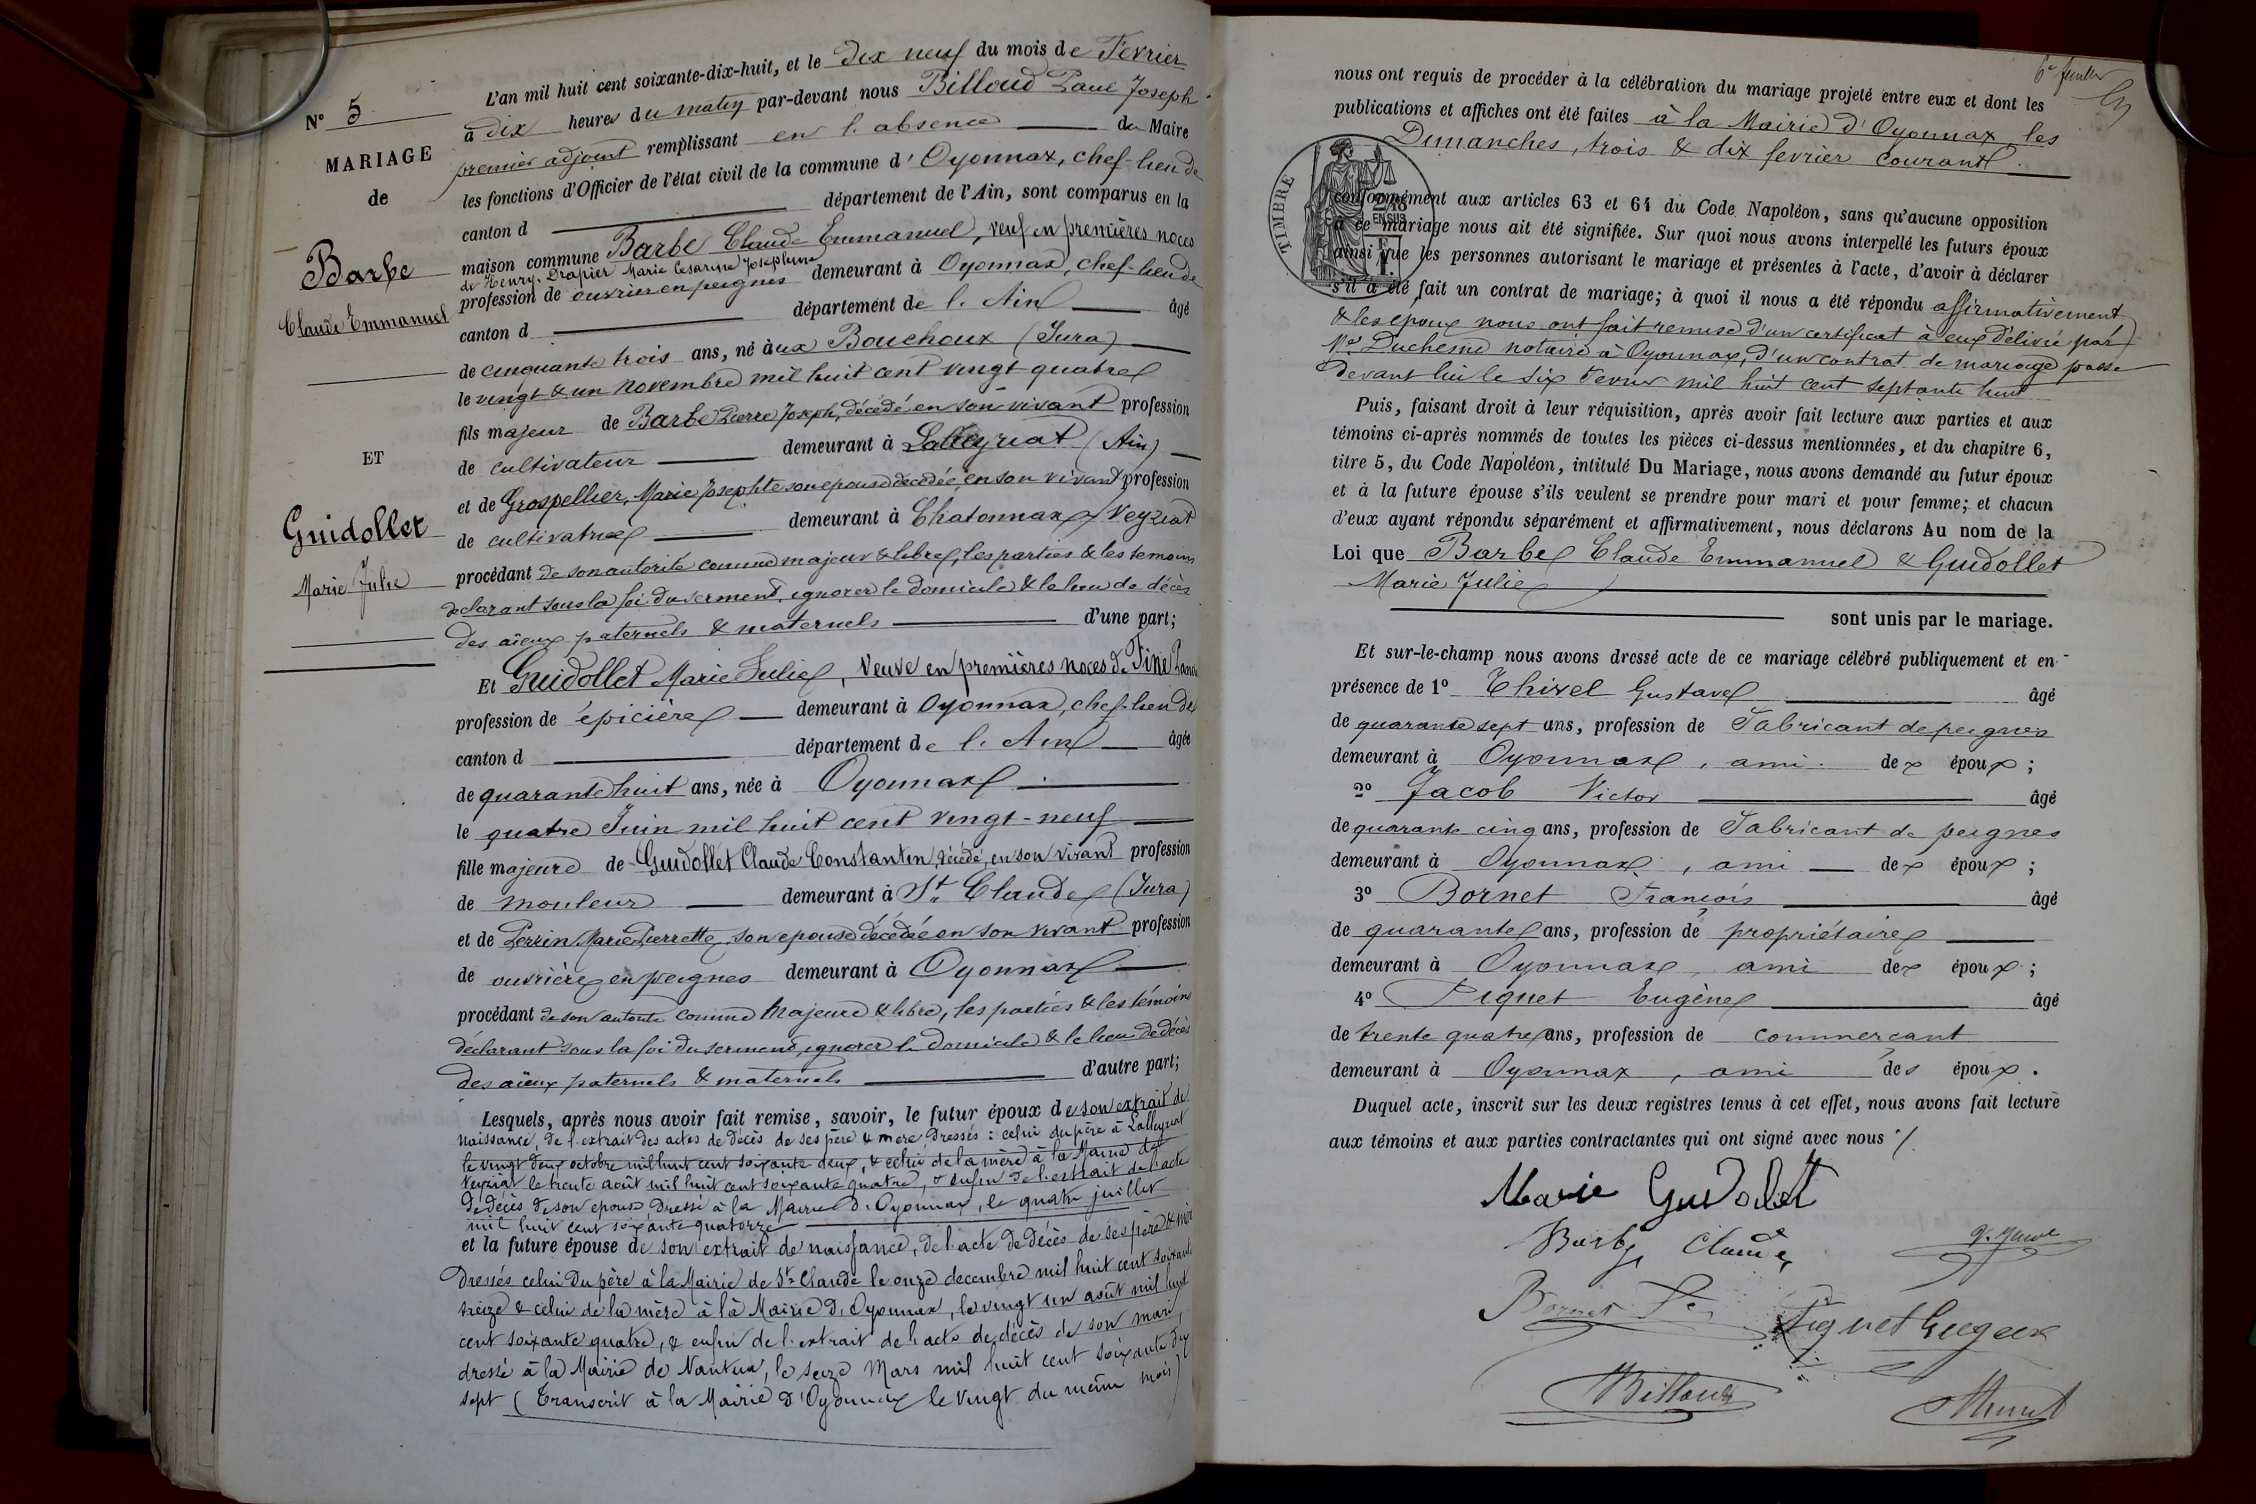 N° 5
MARIAGE
de
Barbe
Claude Emmanuel
ET
Guidollet
Marie Julie
L'an mil huit cent soixante-dix-huit, et le dix neuf du mois de Fevrier
à dix heures du matin par-devant nous Billoud Paul Joseph
premier adjoint remplissant en l'absence du Maire
les fonctions d'Officier de l'état civil de la commune d'Oyonnax, chef-lieu de
canton d département de l'Ain, sont comparus en la
maison commune Barbe Claude Emmanuel, veuf en premières noces
de Henry-Drapier Marie Cesarine Josephine
profession de ouvrier en peignes demeurant à Oyonnax, chef-lieu de
canton d département de l'Ain âgé
de cinquante trois ans, né àux Bouchoux (Jura)
le vingt & un novembre mil huit cent vingt quatre
fils majeur de Barbe Pierre Joseph, décédé en son vivant profession
de cultivateur demeurant à Lalleyriat (Ain)
et de Grospellier, Marie Josephte son epouse décédée, en son vivant profession
de cultivatrice demeurant à Chatonnax / Veyziat
procédant de son autorité comme majeur & libre, les parties & les temoins
declarant sous la foi du serment, ignorer le domicile & le lieu de décès
des aïeux paternels & maternels d'une part;
Et Guidollet Marie Julie, veuve en premières noces de Tine
profession de épicière demeurant à Oyonnax, chef-lieu de
canton d département de l'Ain âgée
de quarante huit ans, née à Oyonnax
le quatre Juin mil huit cent vingt-neuf
fille majeure de Guidollet Claude Constantin, décédé, en son vivant profession
de mouleur demeurant à St Claude (Jura)
et de Perrin Marie Pierrette, son epouse décédée en son vivant profession
de ouvrière en peignes demeurant à Oyonnax
procédant de son autorité comme majeure & libre, les parties & les témoins
déclarant sous la foi du serment, ignorer le domicile & le lieu de décès
des aïeux paternels & maternels d'autre part;
Lesquels, après nous avoir fait remise, savoir, le futur époux de son extrait de
naissance, de l'extrait des actes de décès de ses père & mere dressés : celui du père à Lalleyriat
le vingt deux octobre mil huit cent soixante deux, & celui de la mère à la Mairie de
Veyziat le trente août mil huit cent soixante quatre, & enfin de l'extrait de l'acte
de décès de son epouse dressé à la Mairie d'Oyonnax, le quatre juillet
mil huit cent soixante quatorze
et la future épouse de son extrait de naissance, de l'acte de décès de ses père & mère
dressés celui du père à la Mairie de St Claude le onze decembre mil huit cent soixante
treize & celui de la mère à la Mairie d'Oyonnax, le vingt un août mil huit
cent soixante quatre, & enfin de l'extrait de l'acte de décès de son mari,
dressé à la Mairie de Nantua, le seize Mars mil huit cent soixante dix
sept (Transcrit à la Mairie d'Oyonnax le vingt du même mois)
nous ont requis de procéder à la célébration du mariage projeté entre eux et dont les
publications et affiches ont été faites à la Mairie d'Oyonnax les
Dimanches, trois & dix fevrier courant.
TIMBRE
conformément aux articles 63 et 64 du Code Napoléon, sans qu'aucune opposition
à ce mariage nous ait été signifiée. Sur quoi nous avons interpellé les futurs époux
ainsi que les personnes autorisant le mariage et présentes à l'acte, d'avoir à déclarer
s'il a été fait un contrat de mariage; à quoi il nous a été répondu affirmativement
& les epoux nous ont fait remise d'un certificat à eux délivré par
Me Duchesne notaire à Oyonnax, d'un contrat de mariage passé
devant lui le six Fevrier mil huit cent septante huit
Puis, faisant droit à leur réquisition, après avoir fait lecture aux parties et aux
témoins ci-après nommés de toutes les pièces ci-dessus mentionnées, et du chapitre 6,
titre 5, du Code Napoléon, intitulé Du Mariage, nous avons demandé au futur époux
et à la future épouse s'ils veulent se prendre pour mari et pour femme; et chacun
d'eux ayant répondu séparément et affirmativement, nous déclarons Au nom de la
Loi que Barbe Claude Emmanuel & Guidollet
Marie Julie
sont unis par le mariage.
Et sur-le-champ nous avons dressé acte de ce mariage célébré publiquement et en
présence de 1° Thivel Gustave âgé
de quarante sept ans, profession de Fabricant de peignes
demeurant à Oyonnax, ami des époux;
2° Jacob Victor âgé
de quarante cinq ans, profession de Fabricant de peignes
demeurant à Oyonnax, ami des époux;
3° Bornet François âgé
de quarante ans, profession de propriétaire
demeurant à Oyonnax, ami des époux;
4° Piquet Eugène âgé
de trente quatre ans, profession de commerçant
demeurant à Oyonnax, ami des époux.
Duquel acte, inscrit sur les deux registres tenus à cet effet, nous avons fait lecture
aux témoins et aux parties contractantes qui ont signé avec nous
Marie Guidollet
Barbe Claude
Bornet Fs
Piquet Eugène
Billoud